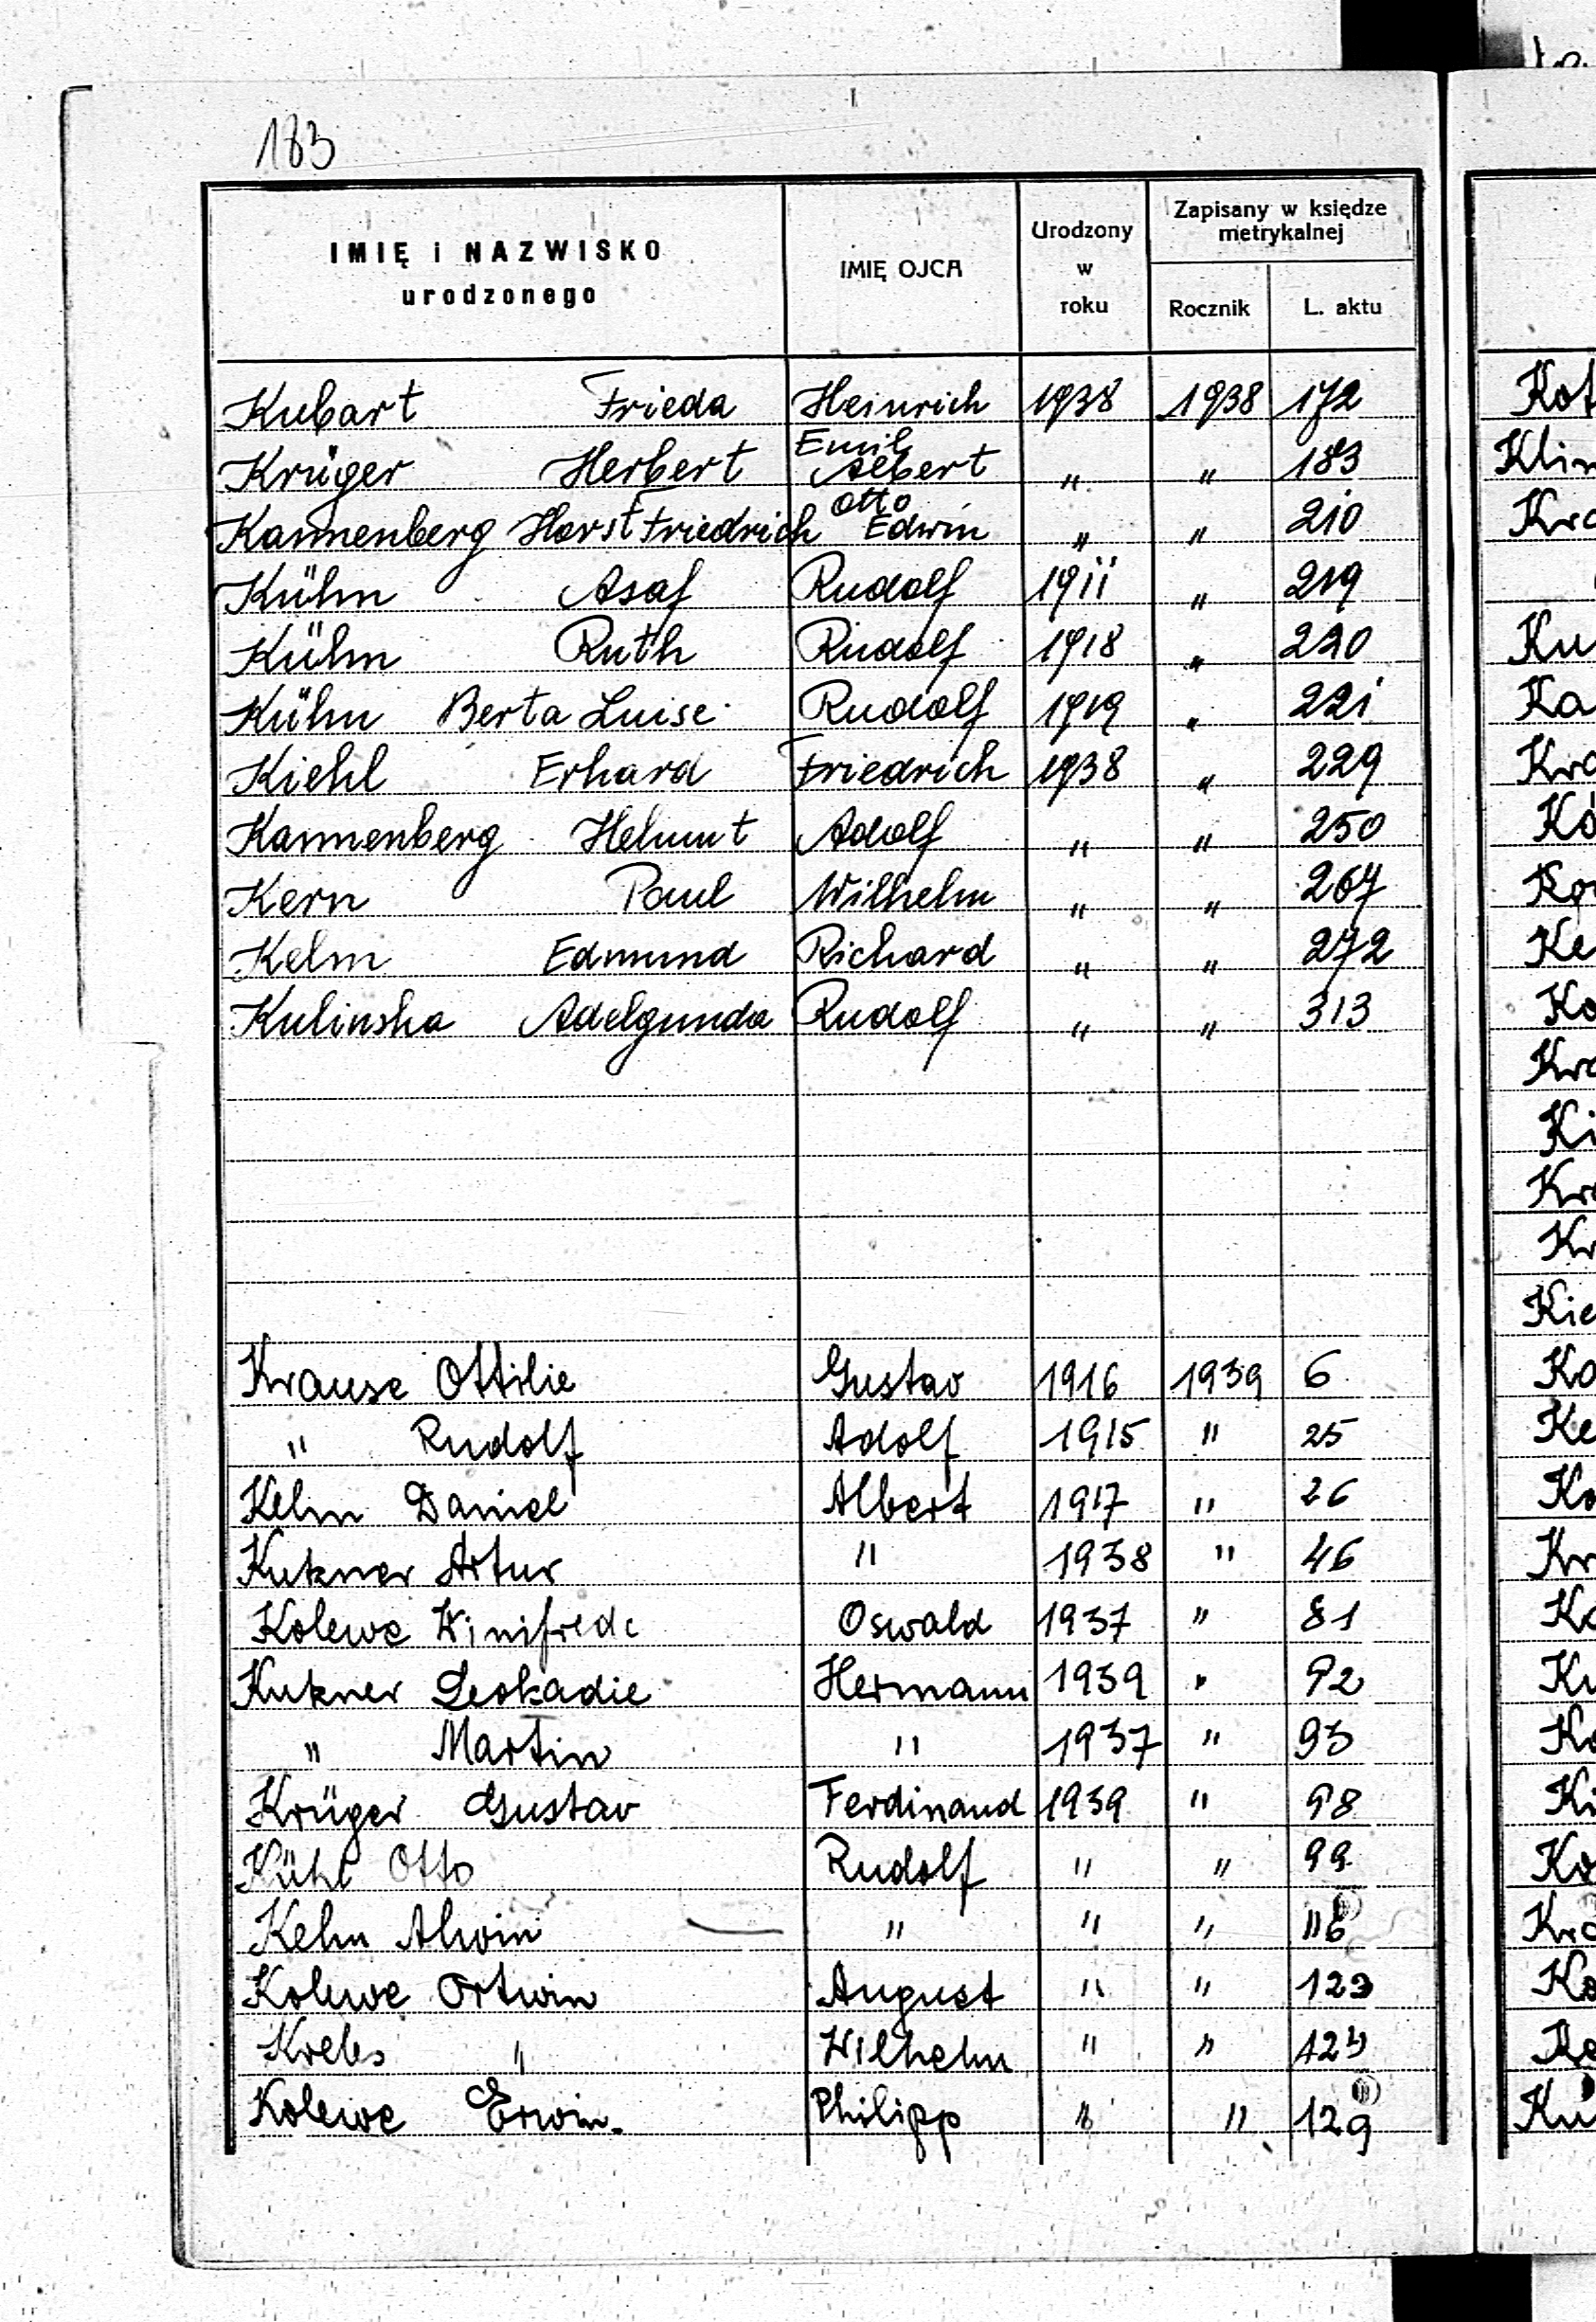 183
IMIĘ i NAZWISKO urodzonego | IMIĘ OJCA | Urodzony w roku | Zapisany w księdze metrykalnej
Rocznik | L. aktu
Kubart Frieda Heinrich 1938 1938 172
Krüger Herbert Emil Albert " " 183
Kannenberg Horst Friedrich Otto Edwin " " 210
Kühn Asaf Rudolf 1911 " 219
Kühn Ruth Rudolf 1918 " 220
Kühn Berta Luise Rudolf 1919 " 221
Kiehl Erhard Friedrich 1938 " 229
Kannenberg Helmut Adolf " " 250
Kern Paul Wilhelm " " 267
Kelm Edmund Richard " " 272
Kulinska Adelgunda Rudolf " " 313
Krause Ottilie Gustav 1916 1939 6
" Rudolf Adolf 1915 " 25
Kelm Daniel Albert 1917 " 26
Kutzner Artur " 1938 " 46
Kolewe Winifrede Oswald 1937 " 81
Kutzner Leokadie Hermann 1939 " 92
" Martin " 1937 " 93
Krüger Gustav Ferdinand 1939 " 98
Kühl Otto Rudolf " " 99
Kelm Alwin " " "
Kolewe Ortwin August " " 123
Krebs " Wilhelm " "
Kolewe Erwin Philipp " " 129
Kot
Klin
Kra
Ku
Ka
Kra
Kö
Ke
Ko
Kra
Ki
Kr
Kr
Kie
Ko
Ke
Ko
Kr
Ko
Ku
Ko
Ki
Ko
Kra
Ko
Ke
Ku